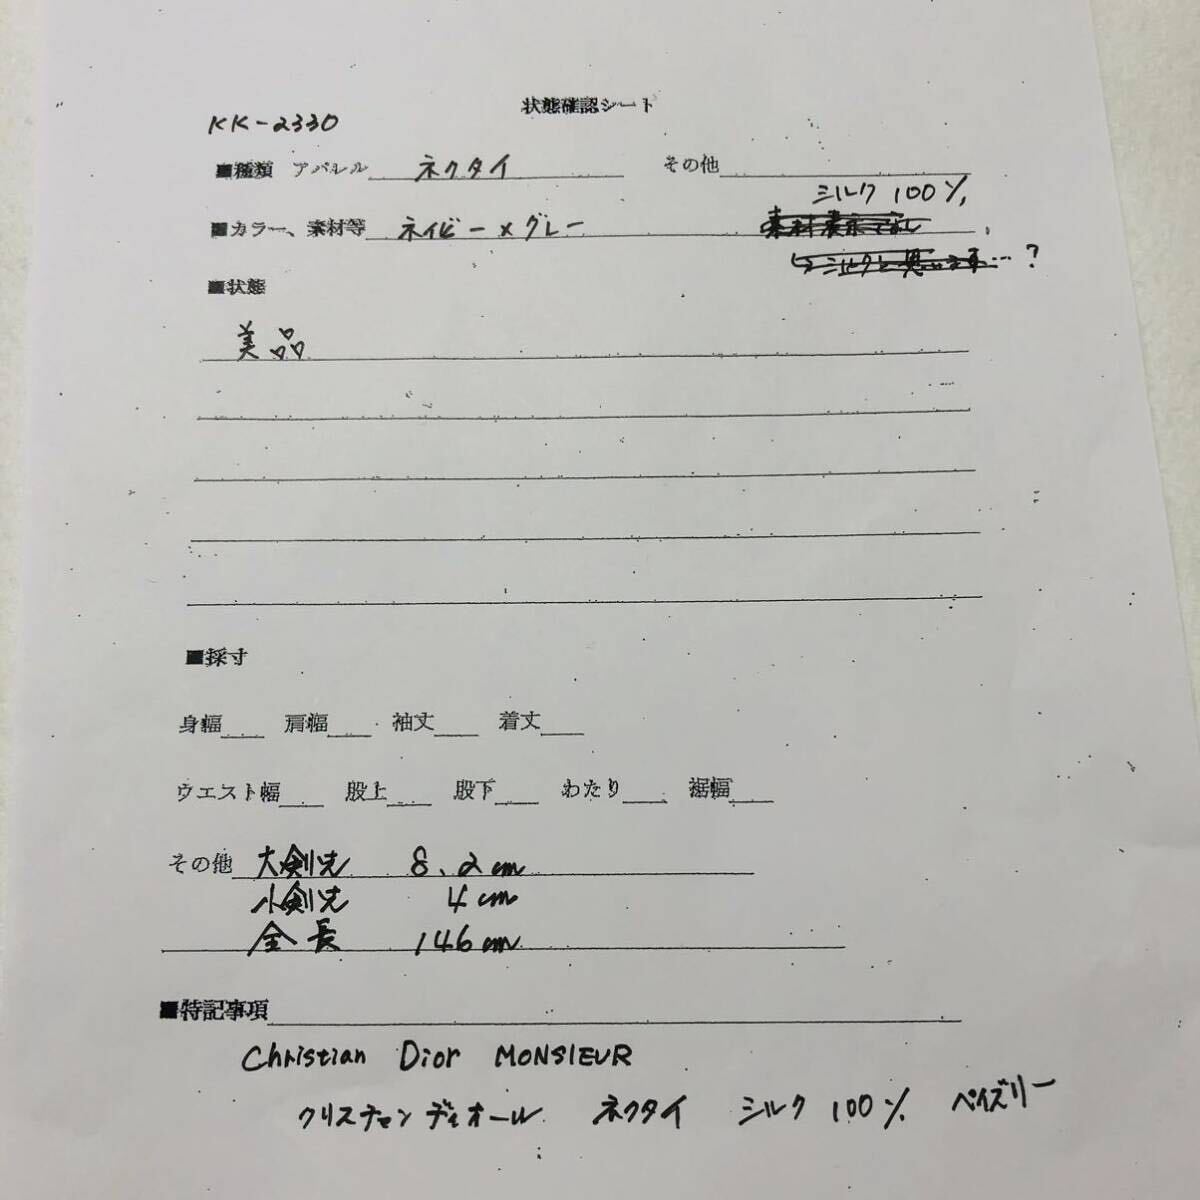 状態確認シート
KK-2330
■種類 アパレル ネクタイ その他
シルク 100%
■カラー、素材等 ネイビー×グレー 素材表示なし
↳シルクと思います…?
■状態
美品
■採寸
身幅 肩幅 袖丈 着丈
ウエスト幅 股上 股下 わたり 裾幅
その他 大剣先 8.2cm
小剣先 4cm
全長 146cm
■特記事項
Christian Dior MONSIEUR
クリスチャンディオール ネクタイ シルク 100% ペイズリー